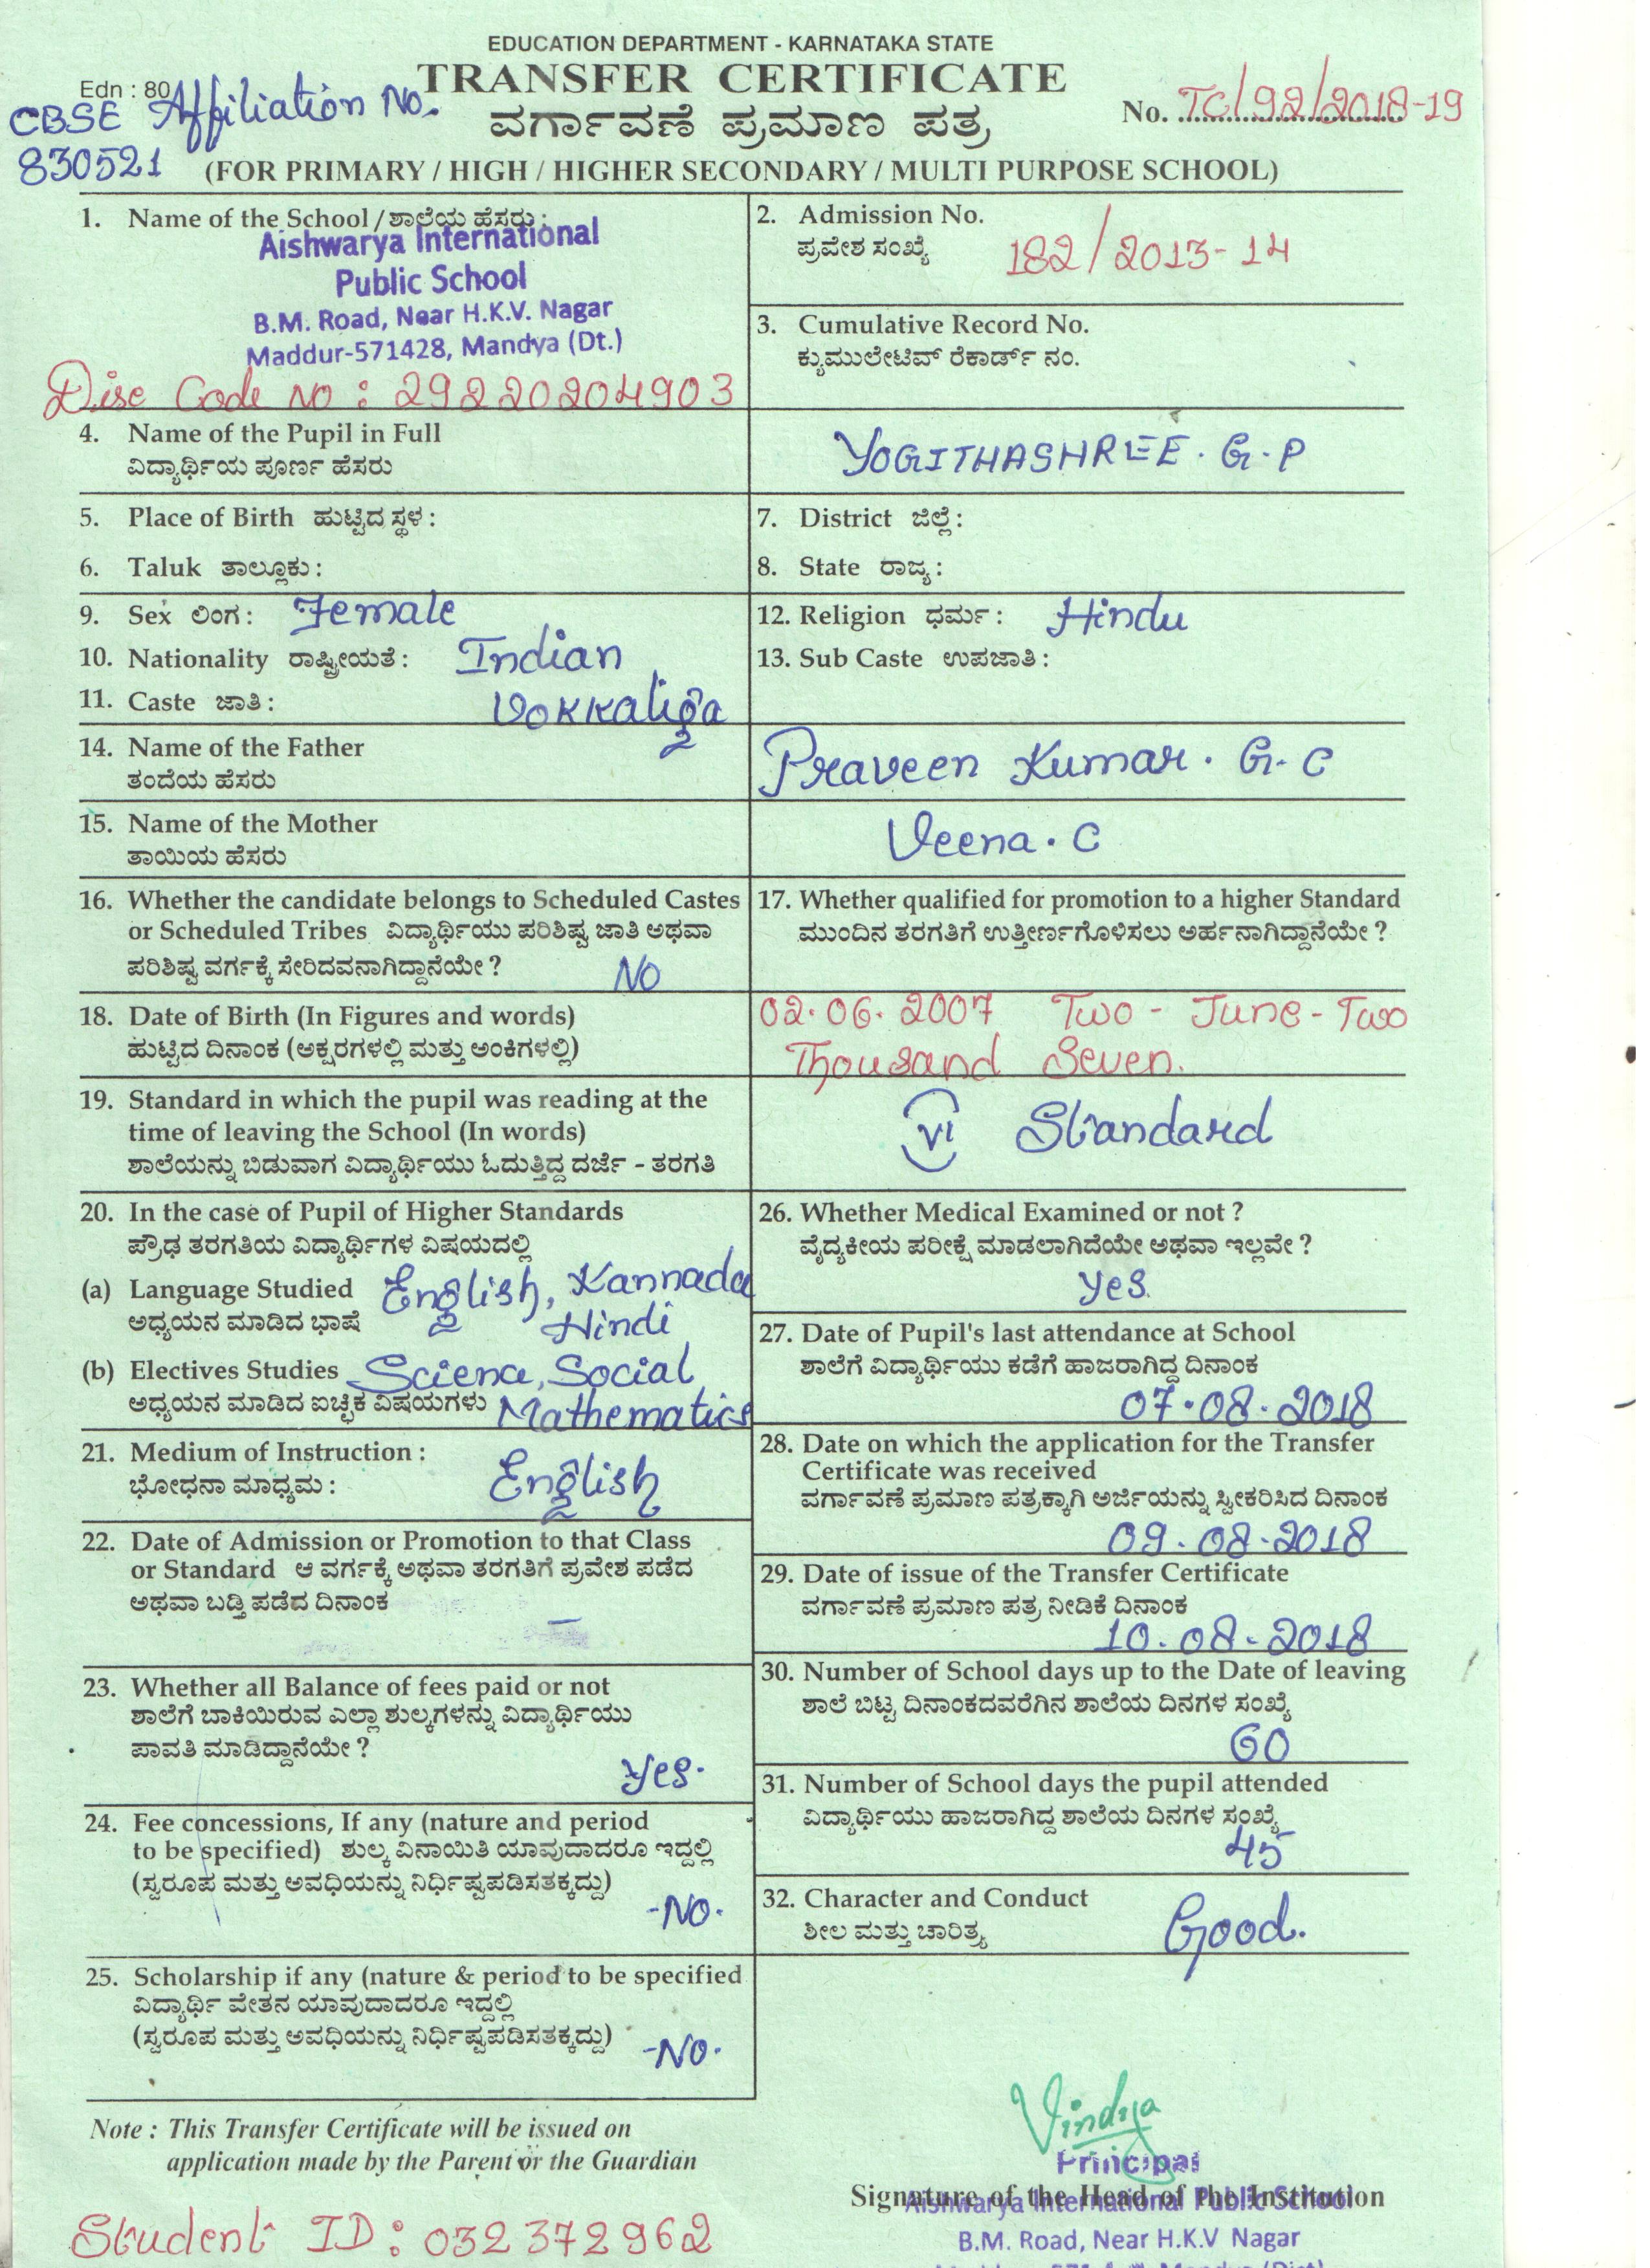 EDUCATION DEPARTMENT - KARNATAKA STATE
Edn : 80
TRANSFER CERTIFICATE
CBSE Affiliation No.
830521
ವರ್ಗಾವಣೆ ಪ್ರಮಾಣ ಪತ್ರ
No. TC/92/2018-19
(FOR PRIMARY / HIGH / HIGHER SECONDARY / MULTI PURPOSE SCHOOL)
1. Name of the School / ಶಾಲೆಯ ಹೆಸರು :
Aishwarya International
Public School
B.M. Road, Near H.K.V. Nagar
Maddur-571428, Mandya (Dt.)
Dise Code no : 29220204903
2. Admission No.
ಪ್ರವೇಶ ಸಂಖ್ಯೆ 182/2013-14
3. Cumulative Record No.
ಕ್ಯುಮುಲೇಟಿವ್ ರೆಕಾರ್ಡ್ ನಂ.
4. Name of the Pupil in Full
ವಿದ್ಯಾರ್ಥಿಯ ಪೂರ್ಣ ಹೆಸರು
YOGITHASHREE. G.P
5. Place of Birth ಹುಟ್ಟಿದ ಸ್ಥಳ :
6. Taluk ತಾಲ್ಲೂಕು :
7. District ಜಿಲ್ಲೆ :
8. State ರಾಜ್ಯ :
9. Sex ಲಿಂಗ : Female
10. Nationality ರಾಷ್ಟ್ರೀಯತೆ : Indian
11. Caste ಜಾತಿ : Vokkaliga
12. Religion ಧರ್ಮ : Hindu
13. Sub Caste ಉಪಜಾತಿ :
14. Name of the Father
ತಂದೆಯ ಹೆಸರು
Praveen Kumar. G.C
15. Name of the Mother
ತಾಯಿಯ ಹೆಸರು
Veena. C
16. Whether the candidate belongs to Scheduled Castes
or Scheduled Tribes ವಿದ್ಯಾರ್ಥಿಯು ಪರಿಶಿಷ್ಟ ಜಾತಿ ಅಥವಾ
ಪರಿಶಿಷ್ಟ ವರ್ಗಕ್ಕೆ ಸೇರಿದವನಾಗಿದ್ದಾನೆಯೇ ? NO
17. Whether qualified for promotion to a higher Standard
ಮುಂದಿನ ತರಗತಿಗೆ ಉತ್ತೀರ್ಣಗೊಳಿಸಲು ಅರ್ಹನಾಗಿದ್ದಾನೆಯೇ ?
18. Date of Birth (In Figures and words)
ಹುಟ್ಟಿದ ದಿನಾಂಕ (ಅಕ್ಷರಗಳಲ್ಲಿ ಮತ್ತು ಅಂಕಿಗಳಲ್ಲಿ)
02.06.2007 Two - June - Two
Thousand Seven.
19. Standard in which the pupil was reading at the
time of leaving the School (In words)
ಶಾಲೆಯನ್ನು ಬಿಡುವಾಗ ವಿದ್ಯಾರ್ಥಿಯು ಓದುತ್ತಿದ್ದ ದರ್ಜೆ - ತರಗತಿ
VI Standard
20. In the case of Pupil of Higher Standards
ಪ್ರೌಢ ತರಗತಿಯ ವಿದ್ಯಾರ್ಥಿಗಳ ವಿಷಯದಲ್ಲಿ
(a) Language Studied English, Kannada
ಅಧ್ಯಯನ ಮಾಡಿದ ಭಾಷೆ Hindi
(b) Electives Studies Science, Social
ಅಧ್ಯಯನ ಮಾಡಿದ ಐಚ್ಛಿಕ ವಿಷಯಗಳು Mathematics
21. Medium of Instruction :
ಭೋಧನಾ ಮಾಧ್ಯಮ : English
22. Date of Admission or Promotion to that Class
or Standard ಆ ವರ್ಗಕ್ಕೆ ಅಥವಾ ತರಗತಿಗೆ ಪ್ರವೇಶ ಪಡೆದ
ಅಥವಾ ಬಡ್ತಿ ಪಡೆದ ದಿನಾಂಕ
—
23. Whether all Balance of fees paid or not
ಶಾಲೆಗೆ ಬಾಕಿಯಿರುವ ಎಲ್ಲಾ ಶುಲ್ಕಗಳನ್ನು ವಿದ್ಯಾರ್ಥಿಯು
ಪಾವತಿ ಮಾಡಿದ್ದಾನೆಯೇ ?
Yes.
24. Fee concessions, If any (nature and period
to be specified) ಶುಲ್ಕ ವಿನಾಯಿತಿ ಯಾವುದಾದರೂ ಇದ್ದಲ್ಲಿ
(ಸ್ವರೂಪ ಮತ್ತು ಅವಧಿಯನ್ನು ನಿರ್ಧಿಷ್ಟಪಡಿಸತಕ್ಕದ್ದು)
-NO.
25. Scholarship if any (nature & period to be specified
ವಿದ್ಯಾರ್ಥಿ ವೇತನ ಯಾವುದಾದರೂ ಇದ್ದಲ್ಲಿ
(ಸ್ವರೂಪ ಮತ್ತು ಅವಧಿಯನ್ನು ನಿರ್ಧಿಷ್ಟಪಡಿಸತಕ್ಕದ್ದು) -NO.
26. Whether Medical Examined or not ?
ವೈದ್ಯಕೀಯ ಪರೀಕ್ಷೆ ಮಾಡಲಾಗಿದೆಯೇ ಅಥವಾ ಇಲ್ಲವೇ ?
Yes.
27. Date of Pupil's last attendance at School
ಶಾಲೆಗೆ ವಿದ್ಯಾರ್ಥಿಯು ಕಡೆಗೆ ಹಾಜರಾಗಿದ್ದ ದಿನಾಂಕ
07.08.2018
28. Date on which the application for the Transfer
Certificate was received
ವರ್ಗಾವಣೆ ಪ್ರಮಾಣ ಪತ್ರಕ್ಕಾಗಿ ಅರ್ಜಿಯನ್ನು ಸ್ವೀಕರಿಸಿದ ದಿನಾಂಕ
09.08.2018
29. Date of issue of the Transfer Certificate
ವರ್ಗಾವಣೆ ಪ್ರಮಾಣ ಪತ್ರ ನೀಡಿಕೆ ದಿನಾಂಕ
10.08.2018
30. Number of School days up to the Date of leaving
ಶಾಲೆ ಬಿಟ್ಟ ದಿನಾಂಕದವರೆಗಿನ ಶಾಲೆಯ ದಿನಗಳ ಸಂಖ್ಯೆ
60
31. Number of School days the pupil attended
ವಿದ್ಯಾರ್ಥಿಯು ಹಾಜರಾಗಿದ್ದ ಶಾಲೆಯ ದಿನಗಳ ಸಂಖ್ಯೆ
45
32. Character and Conduct
ಶೀಲ ಮತ್ತು ಚಾರಿತ್ರ್ಯ Good.
Note : This Transfer Certificate will be issued on
application made by the Parent or the Guardian
Student ID: 032372962
Vindya
Principal
Signature of the Head of the Institution
Aishwarya International Public School
B.M. Road, Near H.K.V Nagar